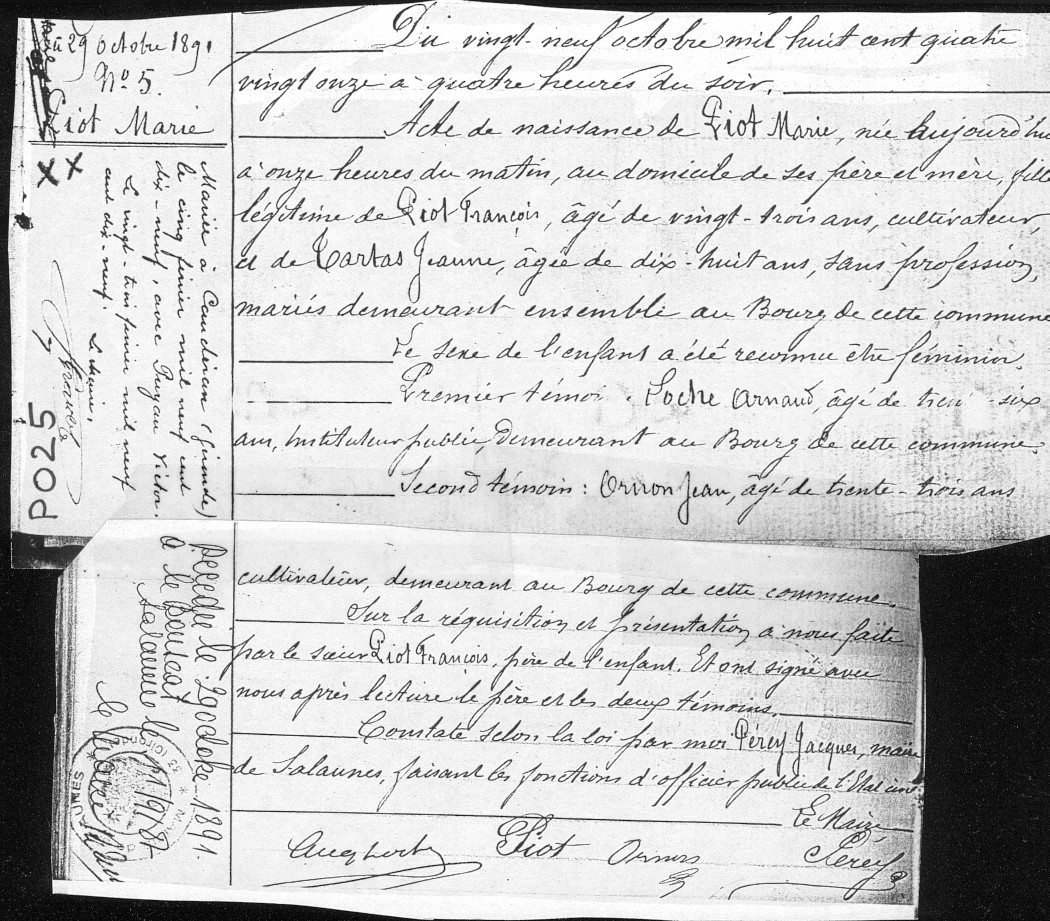 29 octobre 1891
N° 5.
Piot Marie
Du vingt-neuf octobre mil huit cent quatre
vingt onze à quatre heures du soir.
Acte de naissance de Piot Marie, née aujourd'hui
à onze heures du matin, au domicile de ses père et mère, fille
légitime de Piot François, âgé de vingt-trois ans, cultivateur,
et de Tartas Jeanne, âgée de dix-huit ans, sans profession,
mariés demeurant ensemble au Bourg de cette commune
Le sexe de l'enfant a été reconnu être féminin.
Premier témoin. Loche Arnaud, âgé de trente-six
ans, Instituteur public, demeurant au Bourg de cette commune.
Second témoin: Ornon Jean, âgé de trente-trois ans
cultivateur, demeurant au Bourg de cette commune.
Sur la réquisition et présentation à nous faite
par le sieur Piot François, père de l'enfant. Et ont signé avec
nous après lecture le père et les deux témoins.
Constaté selon la loi par moi Pérey Jacques, maire
de Salaunes, faisant les fonctions d'officier public de l'Etat civil
Le Maire
Piot
Pérey
Mariée à Caudéran (Gironde)
le cinq février mil neuf cent
dix-neuf, avec Victor.
Le vingt-trois février mil neuf
cent dix-neuf. Le Maire,
PO25
Décédée le
à le Bouscat
Salaunes le
le Maire